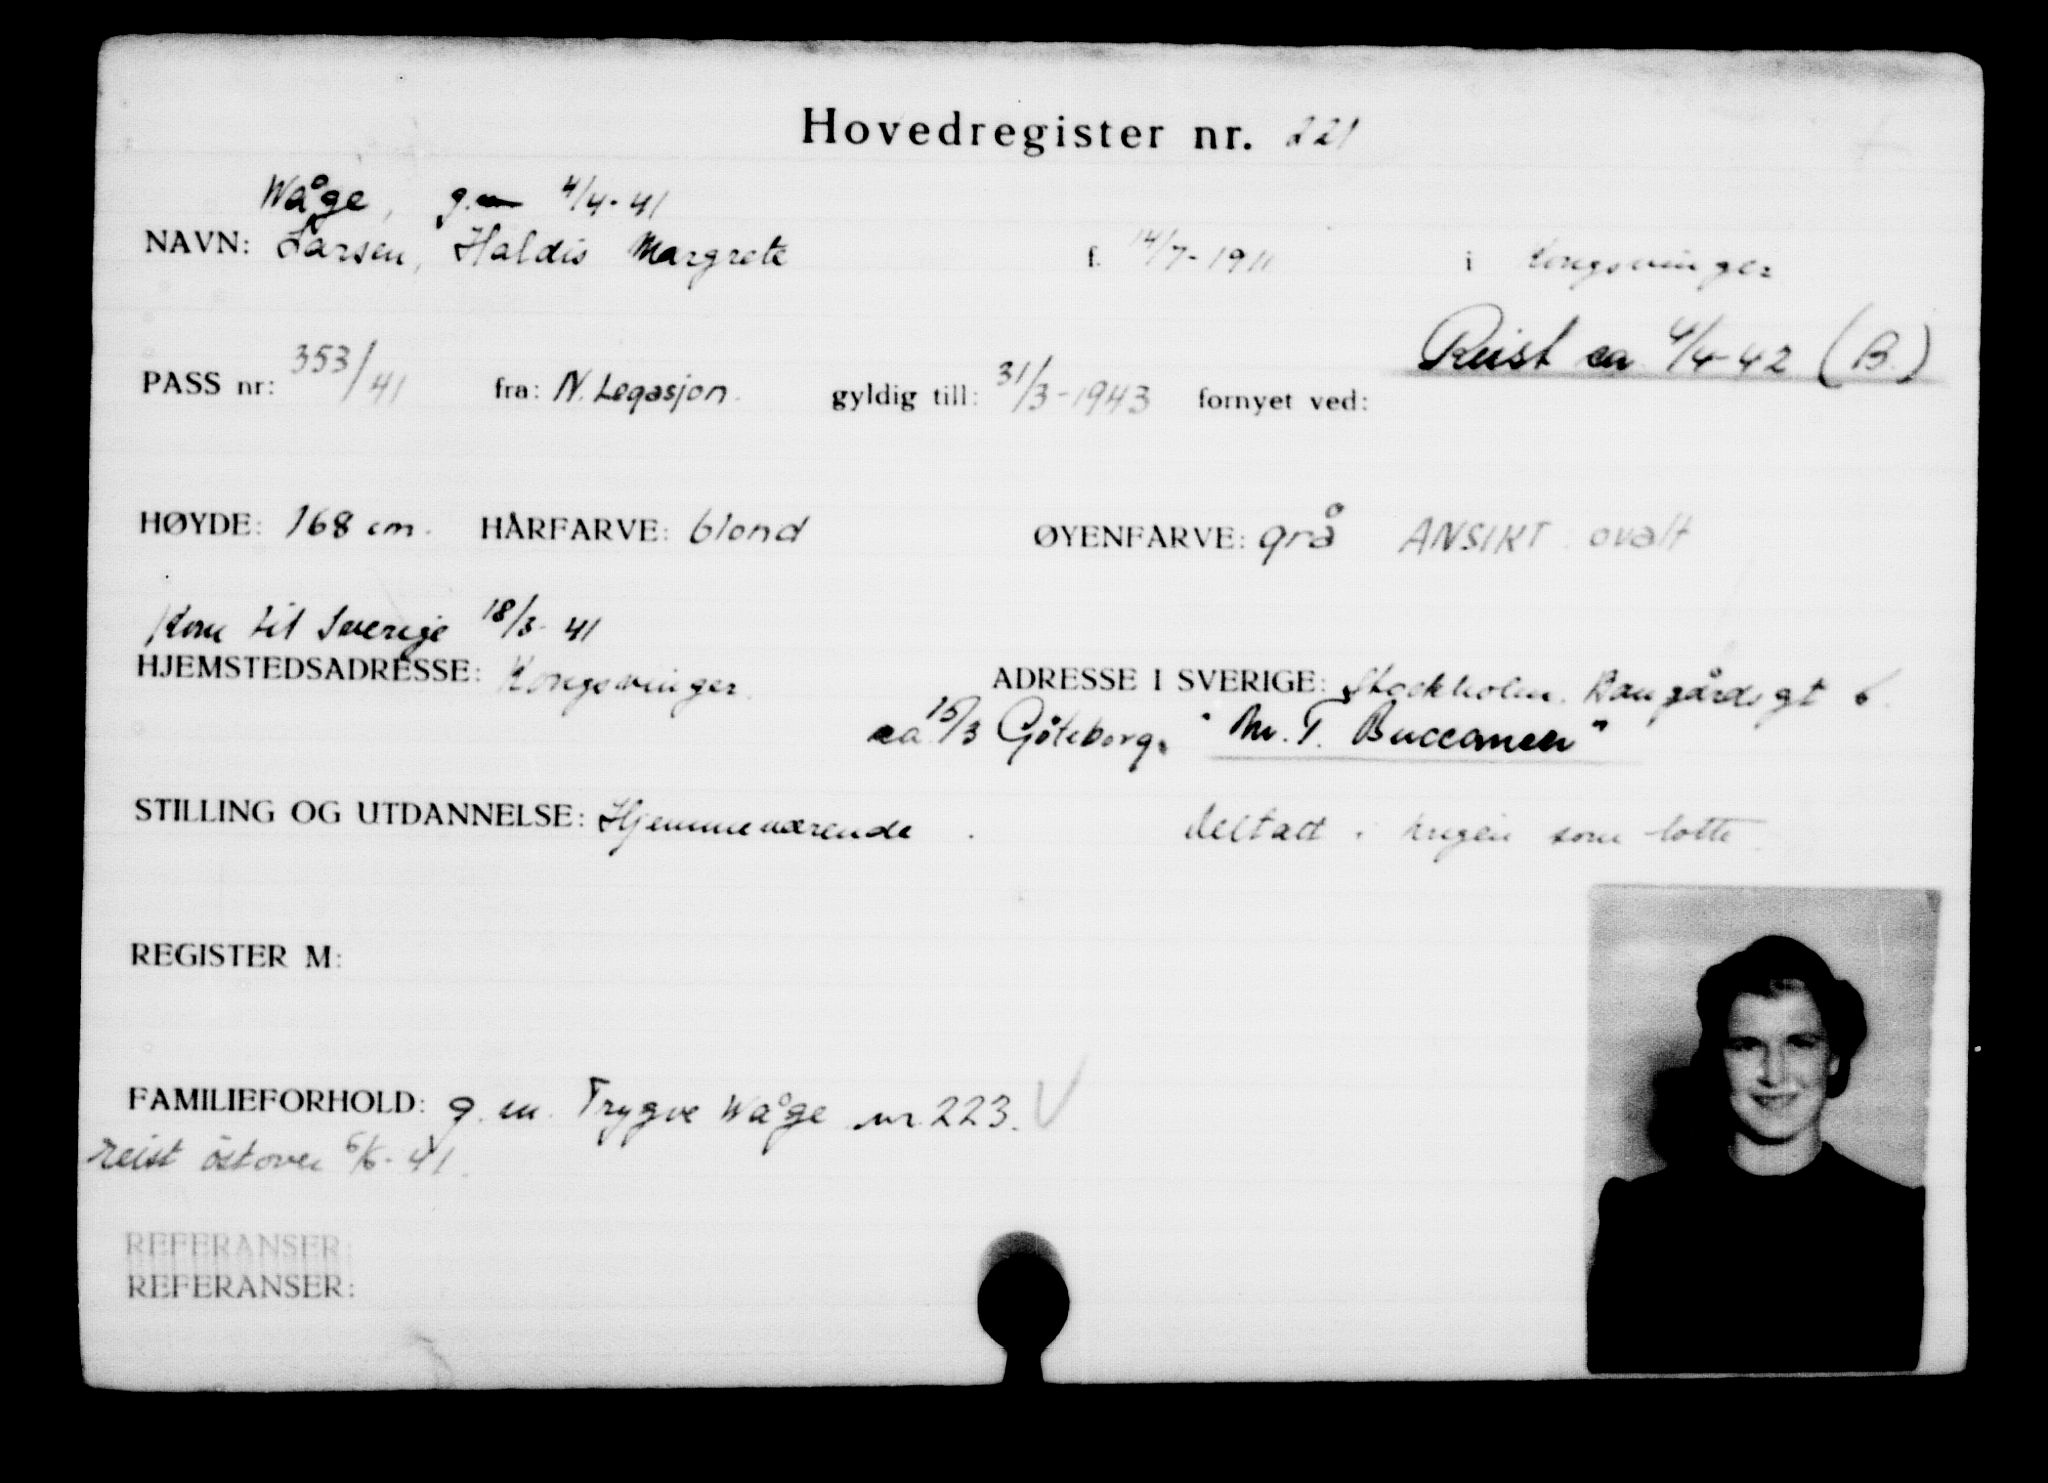 Hovedregister nr. 221
Wåge, g.m 4/4-41
NAVN: Larsen, Haldis Margrete f. 14/7-1911 i Kongsvinger
Reist ca. 4/4-42 (B.)
PASS nr: 353/41 fra: N. Legasjon. gyldig till: 31/3-1943 fornyet ved:
HØYDE: 168 cm. HÅRFARVE: blond ØYENFARVE: grå ANSIKT: ovalt
Kom til Sverige 18/3-41
HJEMSTEDSADRESSE: Kongsvinger. ADRESSE I SVERIGE: Stockholm. gt 6.
ca 15/3 Göteborg. "M.T. Buccaneer"
STILLING OG UTDANNELSE: Hjemmeværende. deltatt i krigen som lotte.
REGISTER M:
FAMILIEFORHOLD: g.m. Trygve Wåge nr. 223. V
reist östover 6/6-41.
REFERANSER:
REFERANSER: